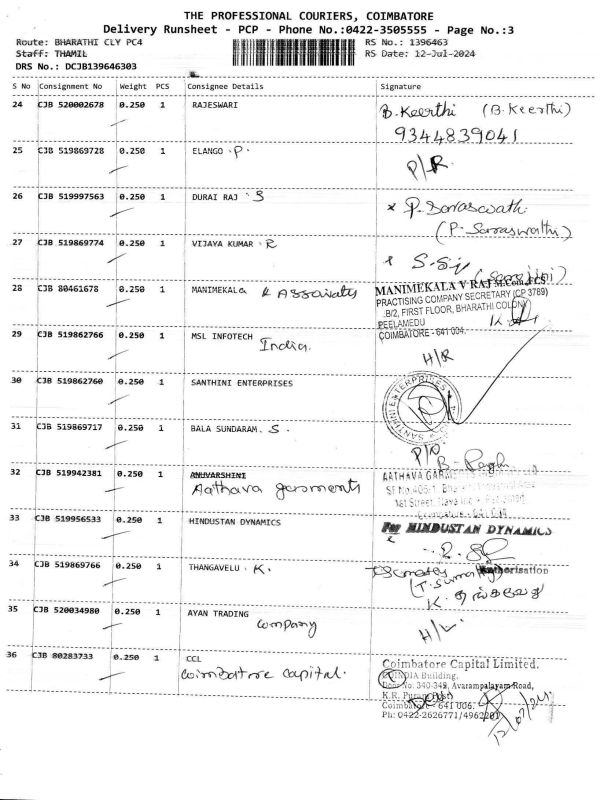 THE PROFESSIONAL COURIERS, COIMBATORE
Delivery Runsheet - PCP - Phone No.:0422-3505555 - Page No.:3
Route: BHARATHI CLY PC4 RS No.: 1396463
Staff: THAMIL RS Date: 12-Jul-2024
DRS No.: DCJB139646303
S No Consignment No Weight PCS Consignee Details Signature
24 CJB 520002678 0.250 1 RAJESWARI B.Keerthi (B.Keerthi)
9344839041
25 CJB 519869728 0.250 1 ELANGO .P. P/R.
26 CJB 519997563 0.250 1 DURAI RAJ S P. Sarraswathi
(P. Sarraswathi)
27 CJB 519869774 0.250 1 VIJAYA KUMAR R
28 CJB 80461678 0.250 1 MANIMEKALa & Associates MANIMEKALA V RAJ M.Com, FCS
PRACTISING COMPANY SECRETARY (CP 3789)
B/2, FIRST FLOOR, BHARATHI COLONY
PEELAMEDU
COIMBATORE - 641 004.
29 CJB 519862766 0.250 1 MSL INFOTECH
India.
H/R
30 CJB 519862760 0.250 1 SANTHINI ENTERPRISES SANTHINI ENTERPRISES
31 CJB 519869717 0.250 1 BALA SUNDARAM. S.
32 CJB 519942381 0.250 1 ANUVARSHINI
Aathava garments
33 CJB 519956533 0.250 1 HINDUSTAN DYNAMICS For HINDUSTAN DYNAMICS
34 CJB 519869766 0.250 1 THANGAVELU . K. Authorisation
K. தங்கவேலு
35 CJB 520034980 0.250 1 AYAN TRADING
company H/L.
36 CJB 80283733 0.250 1 CCL Coimbatore Capital Limited.
coimbatore capital. Building,
Door No: 340-349, Avarampalayam Road,
Coimbatore - 641 006.
Ph: 0422-2626771/4962201
12/07/24